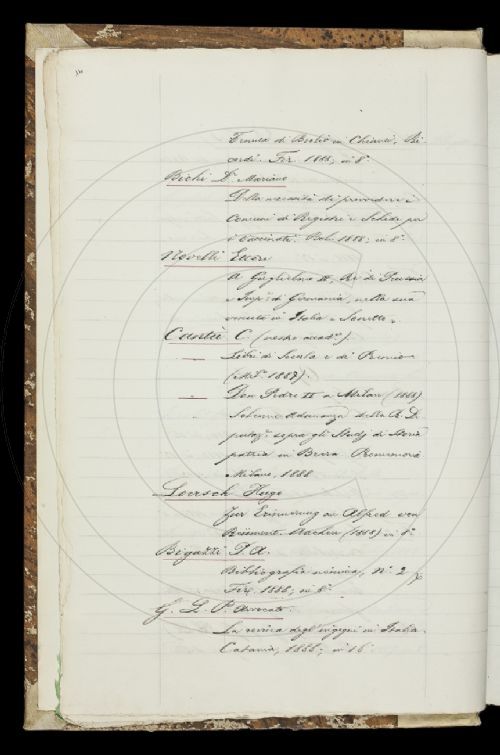 Tenuta di Brolio in Chianti, Ri-
cordi. Fir. 1888; in 8°
Bichi D. Mariano
Della necessità di provvedere i
Comuni di Registri e Schede per
i Vaccinati. Bol. 1888; in 8°
Novelli Ettore
A Guglielmo II, Re di Prussia
e Imp. di Germania, nella sua
venuta in Italia
Cantù C.
Libri di Scuola e di Premio
(Mil. 1887).
" Don Pedro II a Milan (1888)
" Solenne Adunanza della R. De
putaz. sopra gli Studj di Storia
patria in Brera
Milano, 1888
Loersch Hugo
Zur Erinnerung an Alfred von
Reumont. Aachen (1888) in 8°
Bigazzi P. A.
Bibliografia N. 2
Fir. 1888; in 8°
G. L. P. Avvocato
La degl'ingegni in Italia.
Catania, 1888; in 16